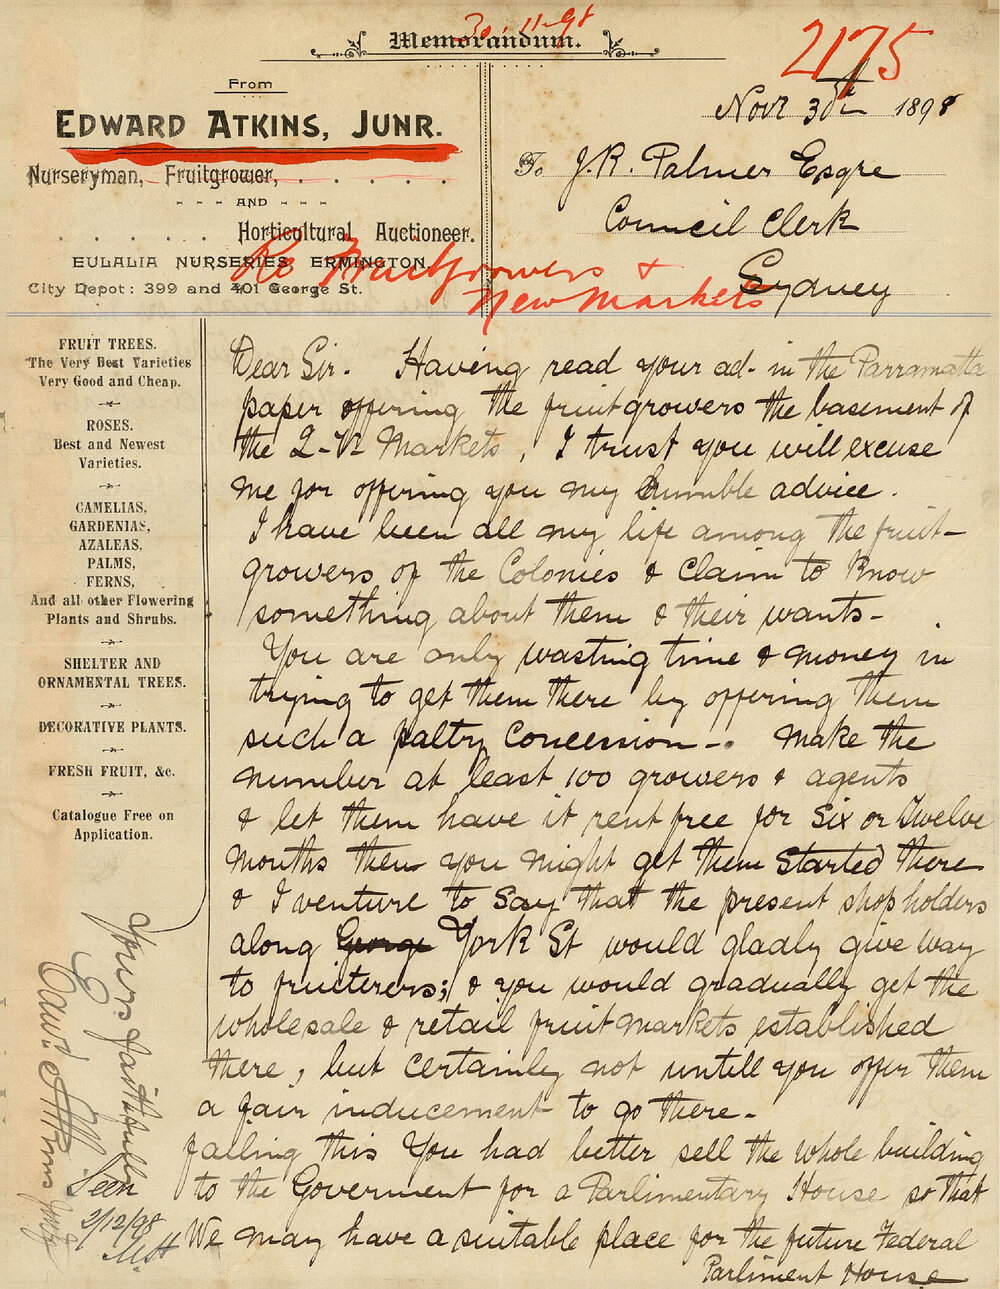 30.11.98
Memorandum.
2175
From
EDWARD ATKINS, JUNR.
Nurseryman, Fruitgrower,
AND
Horticultural Auctioneer.
EULALIA NURSERIES, ERMINGTON.
City Depot: 399 and 401 George St.
Novr 30th 1898
To J. R. Palmer Esqre
Council Clerk
Sydney
Re Fruitgrowers &
New Markets
FRUIT TREES.
The Very Best Varieties
Very Good and Cheap.
ROSES.
Best and Newest
Varieties.
CAMELIAS,
GARDENIAS,
AZALEAS,
PALMS,
FERNS,
And all other Flowering
Plants and Shrubs.
SHELTER AND
ORNAMENTAL TREES.
DECORATIVE PLANTS.
FRESH FRUIT, &c.
Catalogue Free on
Application.
Dear Sir. Having read your ad- in the Parramatta
paper offering the fruitgrowers the basement of
the Q-V Markets, I trust you will excuse
me for offering you my humble advice.
I have been all my life among the fruit-
growers of the Colonies & claim to know
something about them & their wants-
You are only wasting time & money in
trying to get them there by offering them
such a paltry Concession-. Make the
number at least 100 growers & agents
& let them have it rent free for Six or Twelve
months then you might get them Started there
& I venture to Say that the present shop holders
along George York St would gladly give way
to fruiterers; & you would gradually get the
wholesale & retail fruit markets established
there, but certainly not untill you offer them
a fair inducement to go there-
failing this You had better sell the whole building
to the Goverment for a Parlimentary House so that
We may have a suitable place for the future Federal
Parliment House
Yours faithfully
Edwd Atkins Jung
Seen
2/12/98